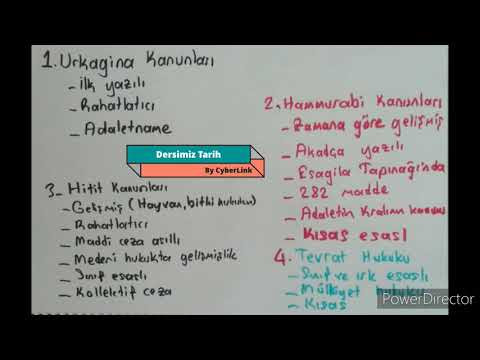 1. Urkagina Kanunları
- ilk yazılı
- Rahatlatıcı
- Adaletname
Dersimiz Tarih
By CyberLink
2. Hammurabi Kanunları
- Zamana göre gelişmiş
- Akadça yazılı
- Esagila Tapınağında
- 282 madde
- Adaletin Kralının kanunu
- Kısas esası
3- Hitit Kanunları
- Gelişmiş (Hayvan, bitki hukuku)
- Rahatlatıcı
- Maddi ceza asıllı
- Medeni hukukta gelişmişlik
- Sınıf esaslı
- Kollektif ceza
4. Tevrat Hukuku
- Sınıf ve ırk esaslı
- Mülkiyet hukuku
- Kısas
PowerDirector